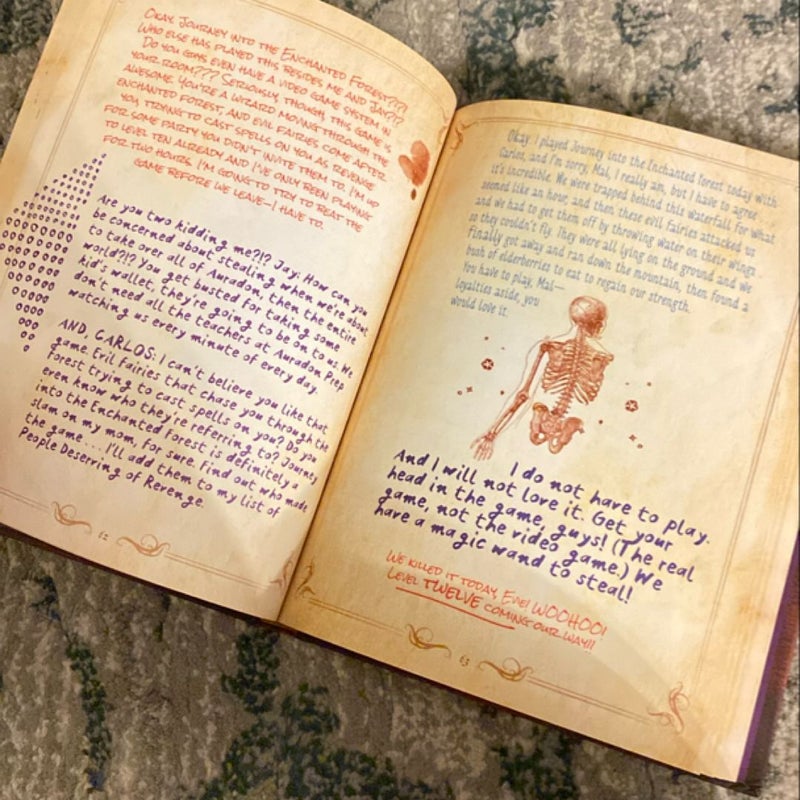 OKAY, JOURNEY INTO THE ENCHANTED FOREST???
WHO ELSE HAS PLAYED THIS BESIDES ME AND JAY?!?
DO YOU GUYS EVEN HAVE A VIDEO GAME SYSTEM IN
YOUR ROOM??? SERIOUSLY, THOUGH, THIS GAME IS
AWESOME. YOU'RE A WIZARD MOVING THROUGH THE
ENCHANTED FOREST, AND EVIL FAIRIES COME AFTER
YOU, TRYING TO CAST SPELLS ON YOU AS REVENGE
FOR SOME PARTY YOU DIDN'T INVITE THEM TO. I'M UP
TO LEVEL TEN ALREADY AND I'VE ONLY BEEN PLAYING
FOR TWO HOURS. I'M GOING TO TRY TO BEAT THE
GAME BEFORE WE LEAVE—I HAVE TO.
Are you two kidding me?!? Jay: How can you
be concerned about stealing when we're about
to take over all of Auradon, then the entire
world?!? You get busted for taking some
kid's wallet, they're going to be on to us. We
don't need all the teachers at Auradon Prep
watching us every minute of every day.
AND, CARLOS: I can't believe you like that
game. Evil fairies that chase you through the
forest trying to cast spells on you? Do you
even know who they're referring to? Journey
into the Enchanted Forest is definitely a
slam on my mom, for sure. Find out who made
the game . . . I'll add them to my list of
People Deserving of Revenge.
62
Okay. I played Journey into the Enchanted Forest today with
Carlos, and I'm sorry, Mal, I really am, but I have to agree
it's incredible. We were trapped behind this waterfall for what
seemed like an hour, and then these evil fairies attacked us
and we had to get them off by throwing water on their wings
so they couldn't fly. They were all lying on the ground and we
finally got away and ran down the mountain, then found a
bush of elderberries to eat to regain our strength.
You have to play, Mal—
loyalties aside, you
would love it.
I do not have to play.
And I will not love it. Get your
head in the game, guys! (The real
game, not the video game.) We
have a magic wand to steal!
WE KILLED IT TODAY, EVIE! WOOHOO!
LEVEL TWELVE COMING OUR WAY!!
63